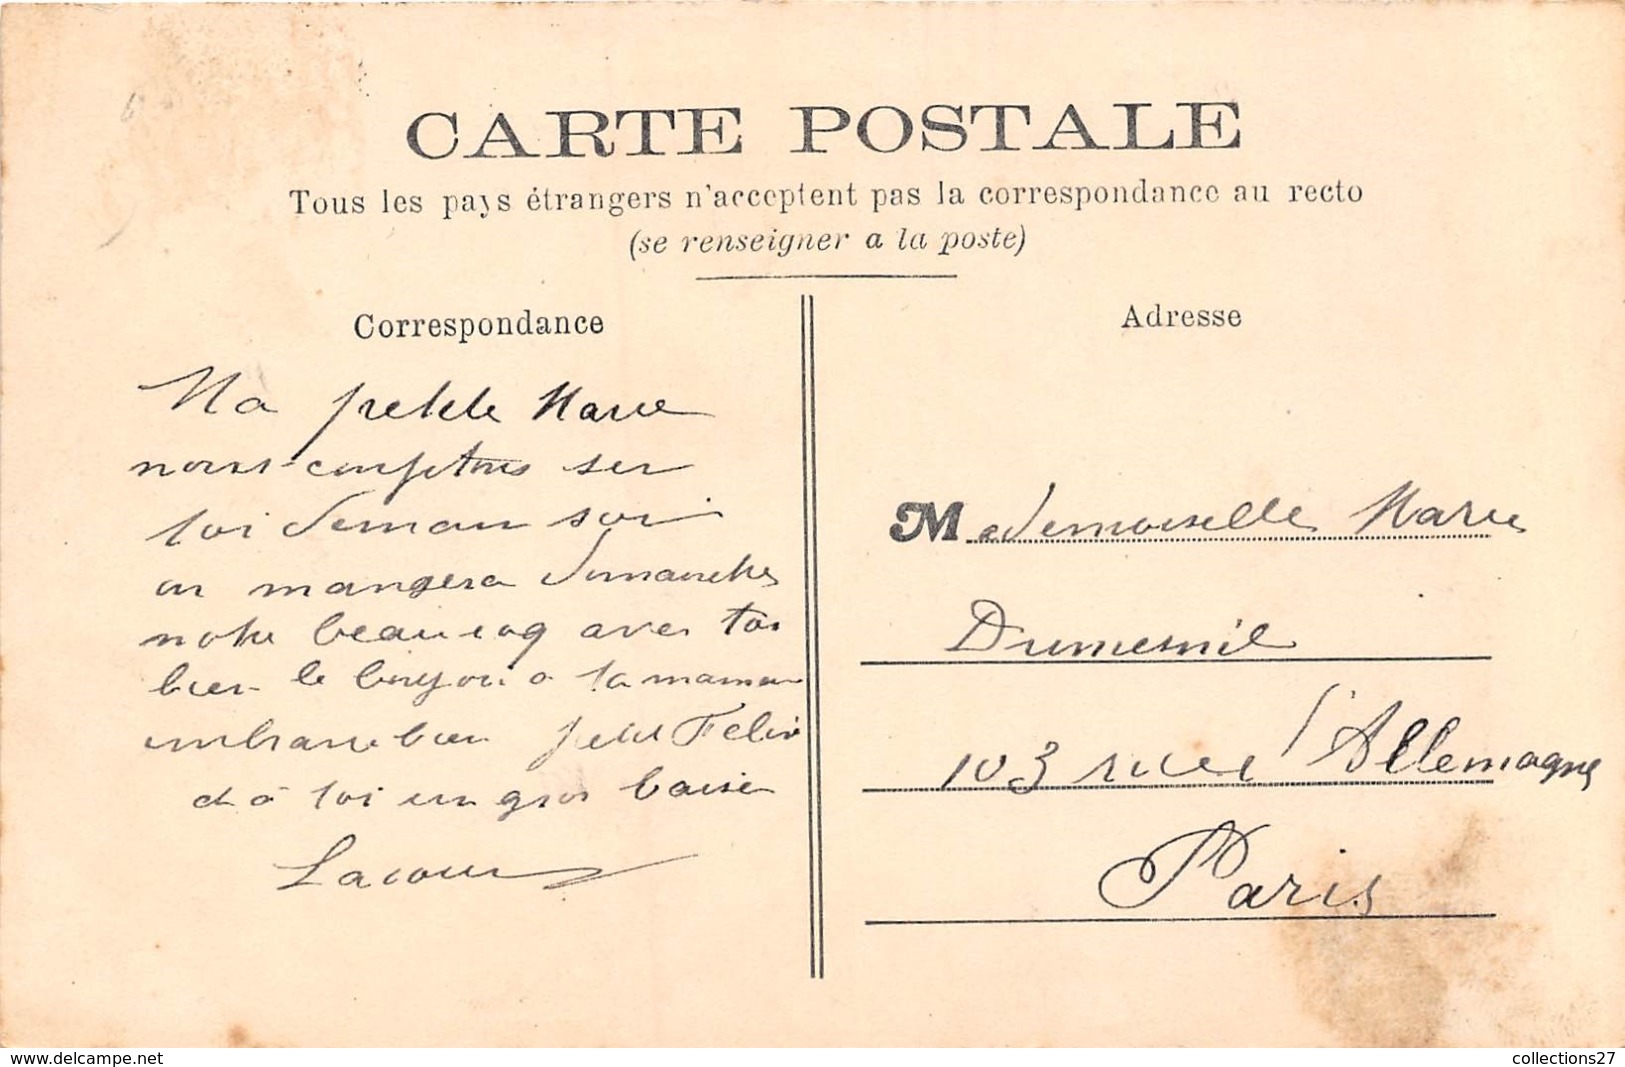 CARTE POSTALE
Tous les pays étrangers n'acceptent pas la correspondance au recto
(se renseigner a la poste)
Correspondance
Adresse
Ma petite Marie
nous comptons sur
toi demain soir
on mangera dimanche
notre beaucoq avec toi
bien le bonjour a ta maman
embrasse bien petit Felix
et a toi un gros baiser
Lacour
Mademoiselle Marie
Dumesnil
103 rue d'Allemagne
Paris
www.delcampe.net
collections27